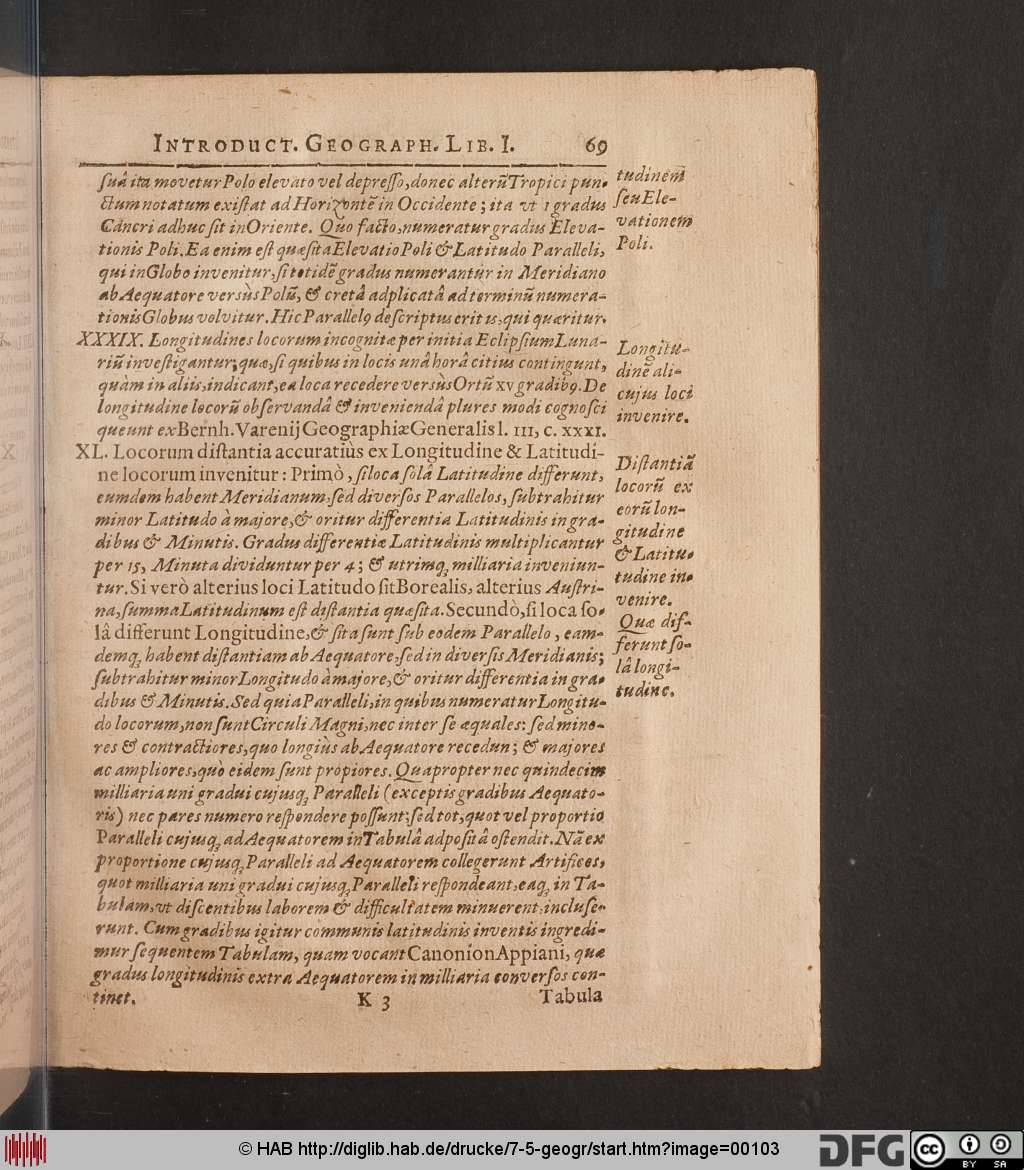 INTRODUCT. GEOGRAPH. LIB. I. 69
suâ ita movetur Polo elevato vel depresso, donec alterũ Tropici pun-
ctum notatum existat ad Horizontẽ in Occidente; ita vt 1 gradus
Cancri adhuc sit in Oriente. Quo facto, numeratur gradus Eleva-
tionis Poli. Ea enim est quæsita Elevatio Poli & Latitudo Paralleli,
qui in Globo invenitur, si totidẽ gradus numerantur in Meridiano
ab Aequatore versùs Polũ, & cretâ adplicatâ ad terminũ numera-
tionis Globus volvitur. Hic Parallelꝰ descriptus erit is, qui quæritur.
tudinem
seu Ele-
vationem
Poli.
XXXIX. Longitudines locorum incognitæ per initia Eclipsium Luna-
riũ investigantur; quæ, si quibus in locis unâ horâ citius contingunt,
quàm in aliis, indicant, ea loca recedere versùs Ortũ xv gradibꝰ. De
longitudine locorũ observandâ & inveniendâ plures modi cognosci
queunt ex Bernh. Varenij Geographiæ Generalis l. III, c. XXXI.
Longitu-
dinẽ ali-
cujus loci
invenire.
XL. Locorum distantia accuratiùs ex Longitudine & Latitudi-
ne locorum invenitur: Primò, si loca solâ Latitudine differunt,
eumdem habent Meridianum, sed diversos Parallelos, subtrahitur
minor Latitudo à majore, & oritur differentia Latitudinis in gra-
dibus & Minutis. Gradus differentiæ Latitudinis multiplicantur
per 15, Minuta dividuntur per 4; & utrimq; milliaria inveniun-
tur. Si verò alterius loci Latitudo sit Borealis, alterius Austri-
na, summa Latitudinum est distantia quæsita. Secundò, si loca so-
lâ differunt Longitudine, & sita sunt sub eodem Parallelo, eam-
demq; habent distantiam ab Aequatore, sed in diversis Meridianis;
subtrahitur minor Longitudo à majore, & oritur differentia in gra-
dibus & Minutis. Sed quia Paralleli, in quibus numeratur Longitu-
do locorum, non sunt Circuli Magni, nec inter se æquales: sed mino-
res & contractiores, quo longiùs ab Aequatore recedun; & majores
ac ampliores, quò eidem sunt propiores. Quapropter nec quindecim
milliaria uni gradui cujusq; Paralleli (exceptis gradibus Aequato-
ris) nec pares numero respondere possunt: sed tot, quot vel proportio
Paralleli cujusq; ad Aequatorem in Tabulâ adpositâ ostendit. Nã ex
proportione cujusq; Paralleli ad Aequatorem collegerunt Artifices,
quot milliaria uni gradui cujusq; Paralleli respondeant, eaq; in Ta-
bulam, vt discentibus laborem & difficultatem minuerent, incluse-
runt. Cum gradibus igitur communis latitudinis inventis ingredi-
mur sequentem Tabulam, quam vocant Canonion Appiani, quæ
gradus longitudinis extra Aequatorem in milliaria conversos con-
tinet.
Distantiã
locorũ ex
eorũ lon-
gitudine
& Latitu-
tudine in-
venire.
Quæ dif-
ferunt so-
lâ longi-
tudine.
K 3 Tabula
© HAB http://diglib.hab.de/drucke/7-5-geogr/start.htm?image=00103
DFG
cc
BY SA